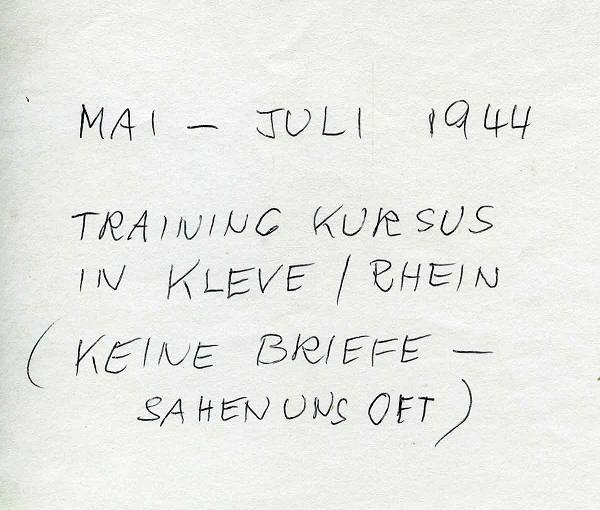 MAI – JULI 1944
TRAINING KURSUS
IN KLEVE / RHEIN
(KEINE BRIEFE –
SAHEN UNS OFT)